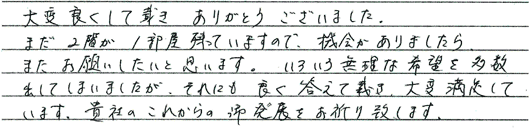 大変良くして戴き ありがとうございました。
まだ2階が1部屋残っていますので、機会がありましたら
またお願いしたいと思います。いろいろ無理な希望を多数
出してしまいましたが、それにも良く答えて戴き、大変満足して
います。貴社のこれからの御発展をお祈り致します。